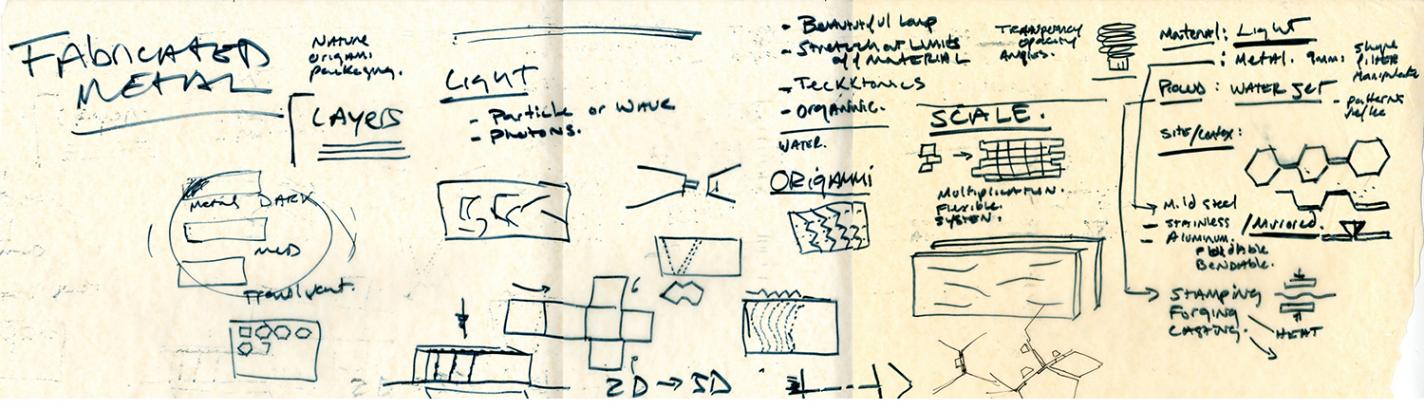 FAbricATED
METAL
NATURE
origami
packaging.
LAyers
LigHT
- Particle or WAVE
- Photons.
- Beautiful Lamp
- Stretch at Limits
of MATERIAL
- Tecktonics
- Organnic.
WATER.
ORigAMMI
TRANSPARENCY
OPACITY
ANGLES.
SCALE.
Multiplication.
Flexible.
System.
Material: Light
: Metal. 9mm:
shape
FILTER
Manipulate
: WATER JET
- patterns
Site/Contex:
Mild Steel
- STAINLESS /Mirrored.
- Aluminum.
Bendable.
STAMPING
Forging
CASTING.
HEAT
Metal DARK
MED
2D → 3D